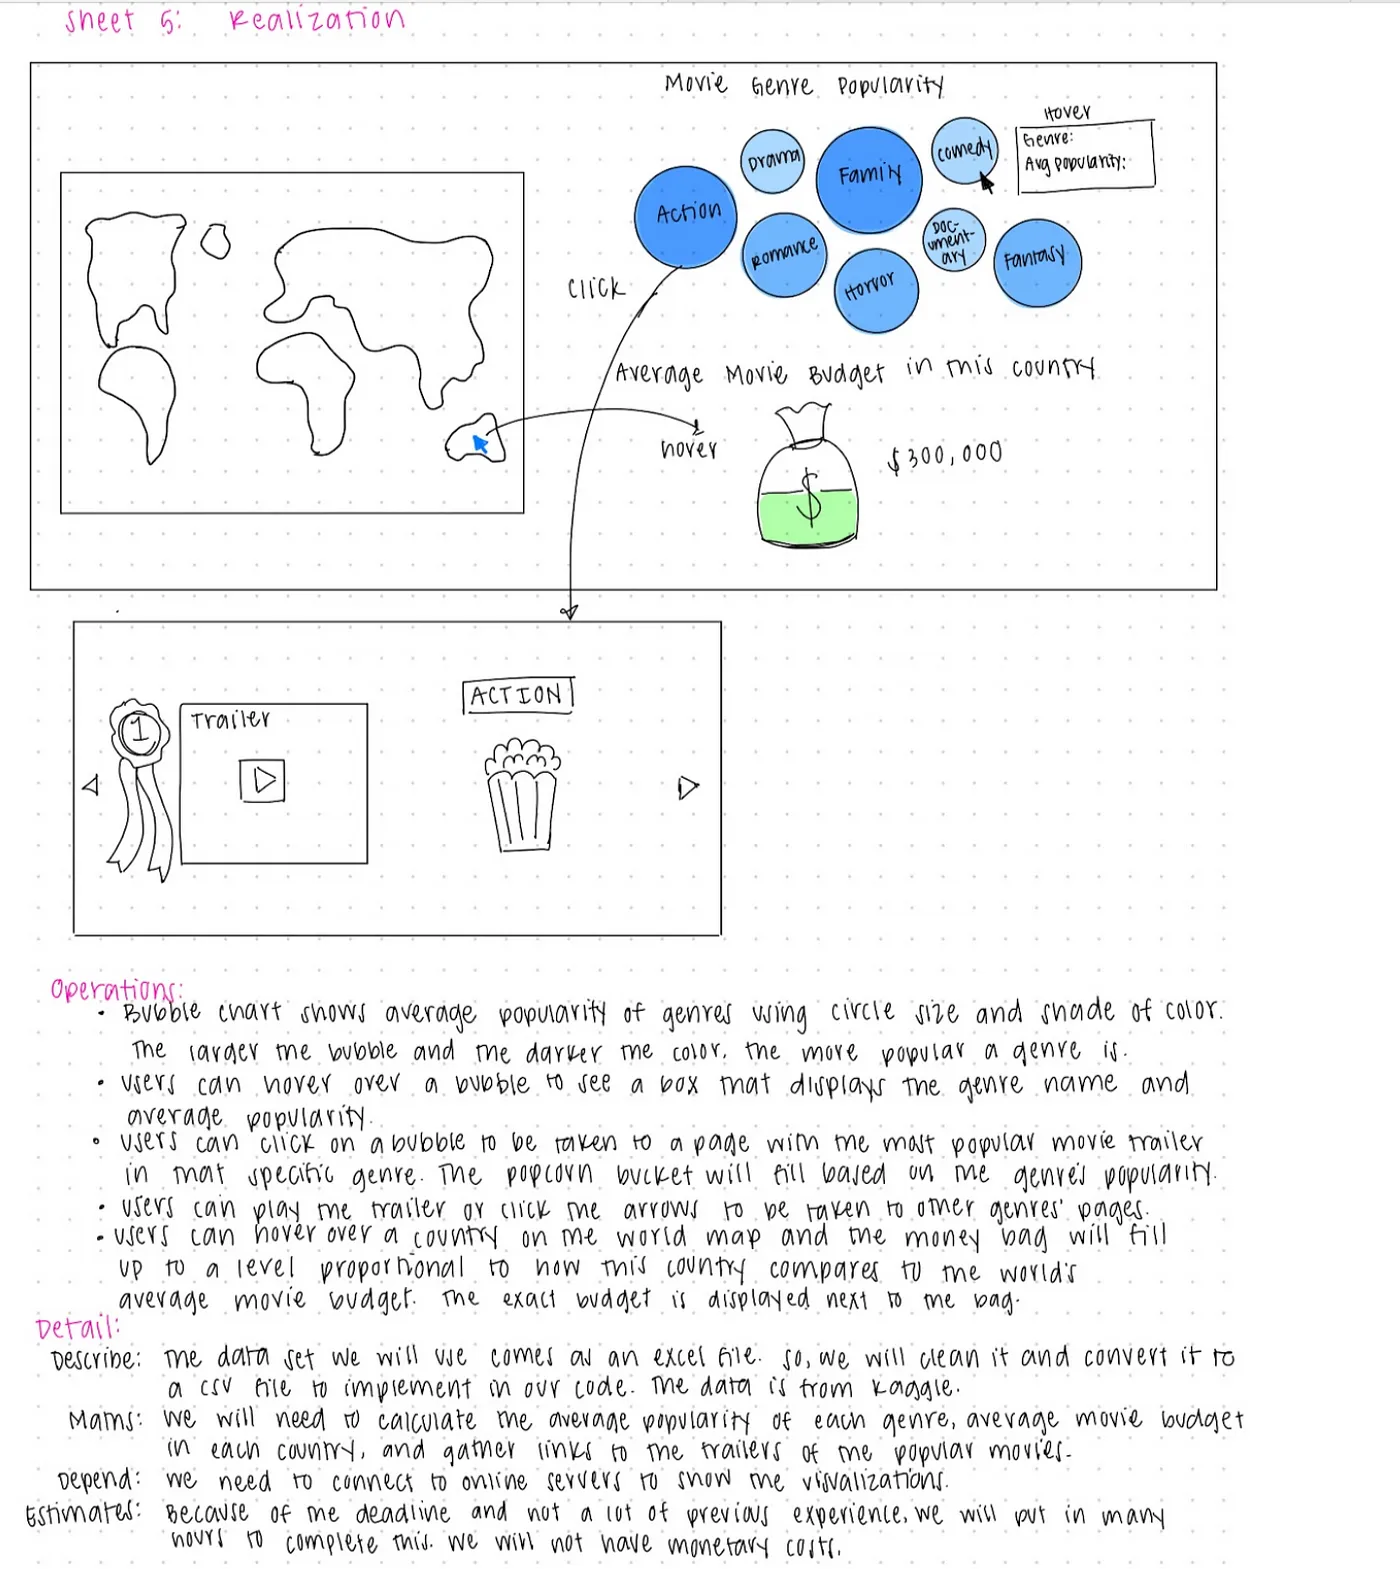 Sheet 5: Realization
Movie Genre Popularity
Hover
Genre:
Avg popularity:
Drama
Family
comedy
Action
Romance
Doc-
ument-
ary
Fantasy
Horror
click
Average Movie Budget in this country
hover
$
$300,000
ACTION
1
Trailer
Operations:
• Bubble chart shows average popularity of genres using circle size and shade of color.
The larger the bubble and the darker the color, the more popular a genre is.
• users can hover over a bubble to see a box that displays the genre name and
average popularity.
• users can click on a bubble to be taken to a page with the most popular movie trailer
in that specific genre. The popcorn bucket will fill based on the genre's popularity.
• users can play the trailer or click the arrows to be taken to other genres' pages.
• users can hover over a country on the world map and the money bag will fill
up to a level proportional to how this country compares to the world's
average movie budget. The exact budget is displayed next to the bag.
Detail:
Describe: The data set we will use comes as an excel file. so, we will clean it and convert it to
a csv file to implement in our code. The data is from Kaggle.
Maths: We will need to calculate the average popularity of each genre, average movie budget
in each country, and gather links to the trailers of the popular movies.
Depend: we need to connect to online servers to show the visualizations.
Estimates: Because of the deadline and not a lot of previous experience, we will put in many
hours to complete this. we will not have monetary costs.